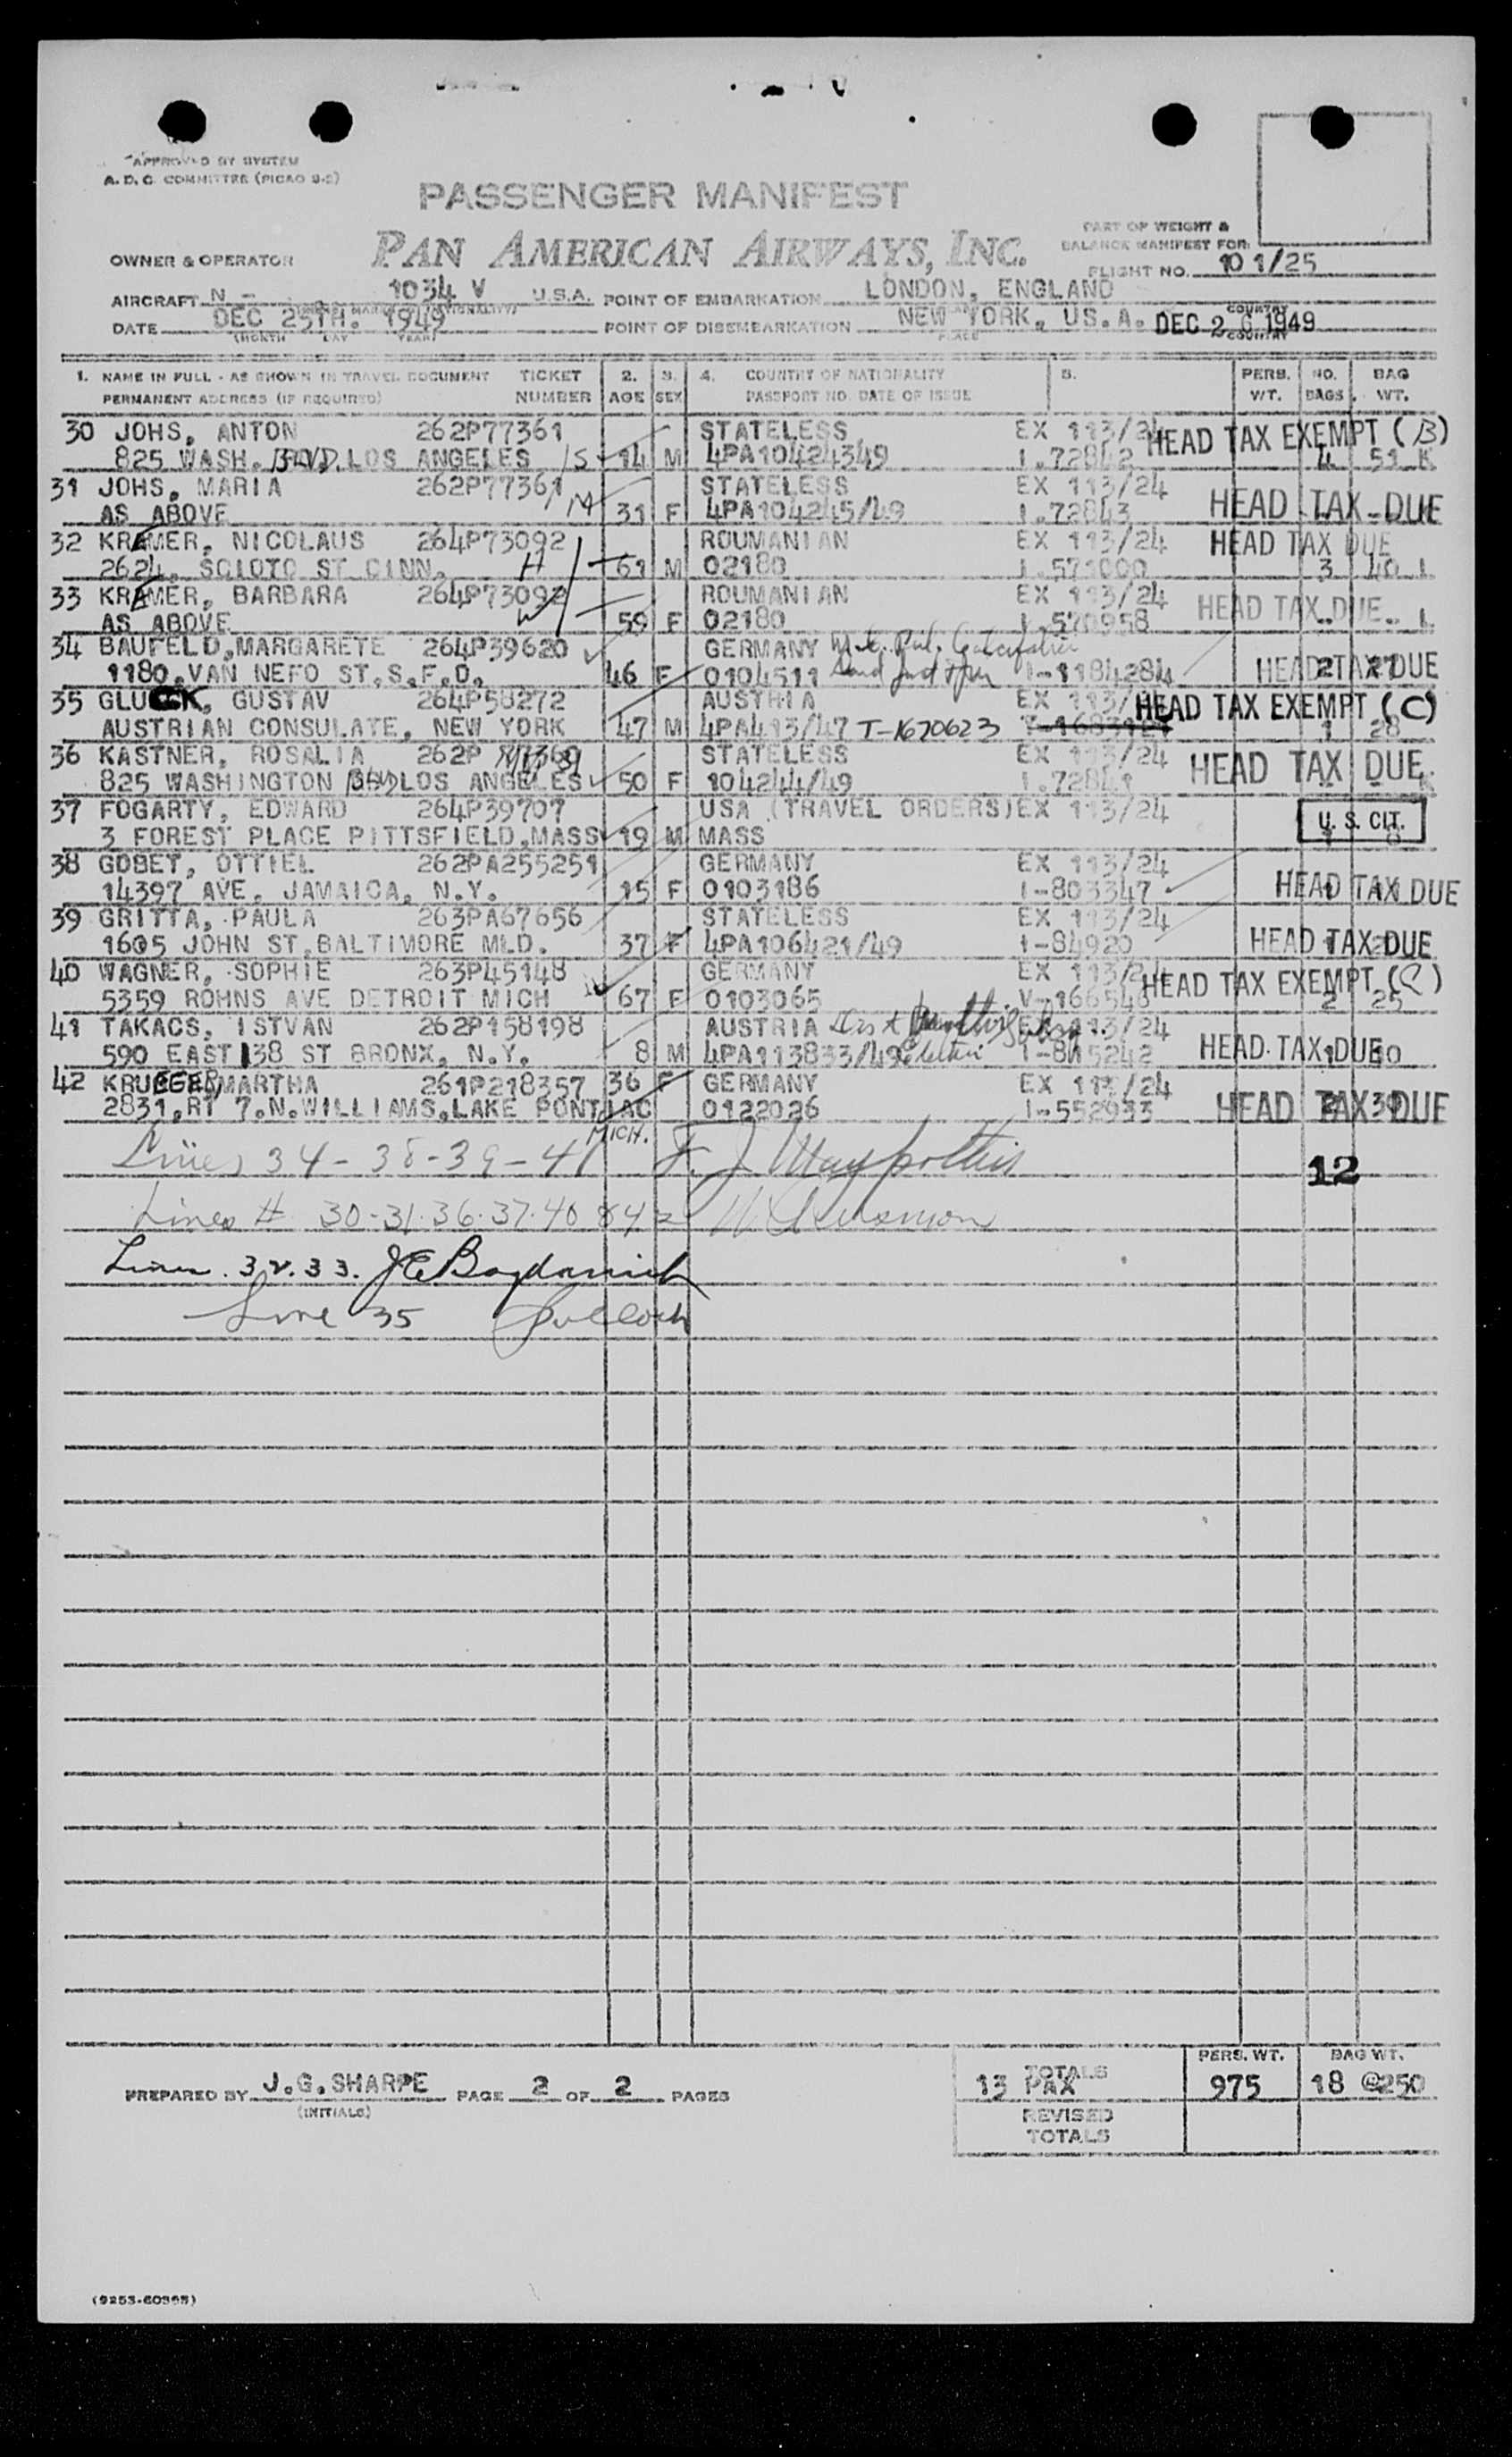 APPROVED BY SYSTEM
A. D. C. COMMITTEE (PICAO 9-2)
PASSENGER MANIFEST
OWNER & OPERATOR PAN AMERICAN AIRWAYS, INC.
PART OF WEIGHT &
BALANCE MANIFEST FOR:
FLIGHT NO. 101/25
AIRCRAFT N - 1034 V U.S.A. POINT OF EMBARKATION LONDON, ENGLAND
DATE DEC 25TH. 1949 POINT OF DISEMBARKATION NEW YORK, US.A. DEC 26 1949
(MONTH DAY YEAR) PLACE COUNTRY
1. NAME IN FULL - AS SHOWN IN TRAVEL DOCUMENT TICKET 2. 3. 4. COUNTRY OF NATIONALITY 5. PERS. NO. BAG
PERMANENT ADDRESS (IF REQUIRED) NUMBER AGE SEX PASSPORT NO. DATE OF ISSUE WT. BAGS WT.
30 JOHS, ANTON 262P77361 STATELESS EX 113/24 HEAD TAX EXEMPT (B)
825 WASH. BLVD. LOS ANGELES 14 M 4PA10424349 I.72842 4 51 K
31 JOHS, MARIA 262P77361 STATELESS EX 113/24 HEAD TAX DUE
AS ABOVE 31 F 4PA104245/49 I.72843
32 KREMER, NICOLAUS 264P73092 ROUMANIAN EX 113/24 HEAD TAX DUE
2624, SCIOTO ST CINN, H 61 M 02180 I.571000 3 40 L
33 KREMER, BARBARA 264P73092 ROUMANIAN EX 113/24 HEAD TAX DUE
AS ABOVE W 59 F 02180 I.570958 L
34 BAUFELD, MARGARETE 264P39620 GERMANY
1180, VAN NEFO ST, S.F.O. 46 F 0104511 I-1184284 HEAD TAX DUE 2 27
35 GLUCK, GUSTAV 264P58272 AUSTRIA EX 113/ HEAD TAX EXEMPT (C)
AUSTRIAN CONSULATE, NEW YORK 47 M 4PA413/47 T-1670623 1 28
36 KASTNER, ROSALIA 262P STATELESS EX 113/24 HEAD TAX DUE
825 WASHINGTON Blvd LOS ANGELES 50 F 104244/49 I.72841 K
37 FOGARTY, EDWARD 264P39707 USA (TRAVEL ORDERS) EX 113/24 U. S. CIT.
3 FOREST PLACE PITTSFIELD, MASS 19 M MASS 1 8
38 GOBET, OTTIEL 262PA255251 GERMANY EX 113/24
14397 AVE, JAMAICA, N.Y. 15 F 0103186 I-803347 HEAD TAX DUE
39 GRITTA, PAULA 263PA67656 STATELESS EX 113/24
1605 JOHN ST, BALTIMORE MLD. 37 F 4PA106421/49 I-84920 HEAD TAX DUE
40 WAGNER, SOPHIE 263P45148 GERMANY EX 113/24 HEAD TAX EXEMPT (C)
5359 ROHNS AVE DETROIT MICH 67 F 0103065 V-166548 2 25
41 TAKACS, ISTVAN 262P158198 AUSTRIA EX 113/24
590 EAST 138 ST BRONX, N.Y. 8 M 4PA113833/49 I-845242 HEAD TAX DUE 1 10
42 KRUEGER, MARTHA 261P218357 36 F GERMANY EX 113/24
2831, RT 7. N. WILLIAMS, LAKE PONTIAC 0122026 I-552933 HEAD TAX DUE 2 30
MICH.
Lines 34 - 38 - 39 - 41 12
Lines # 30-31-36-37-40 & 42
Lines. 32.33. J E Bogdanich
Line 35
PREPARED BY J.G.SHARPE PAGE 2 OF 2 PAGES
(INITIALS)
TOTALS PERS. WT. BAG WT.
13 PAX 975 18 @250
REVISED
TOTALS
(9253-60395)